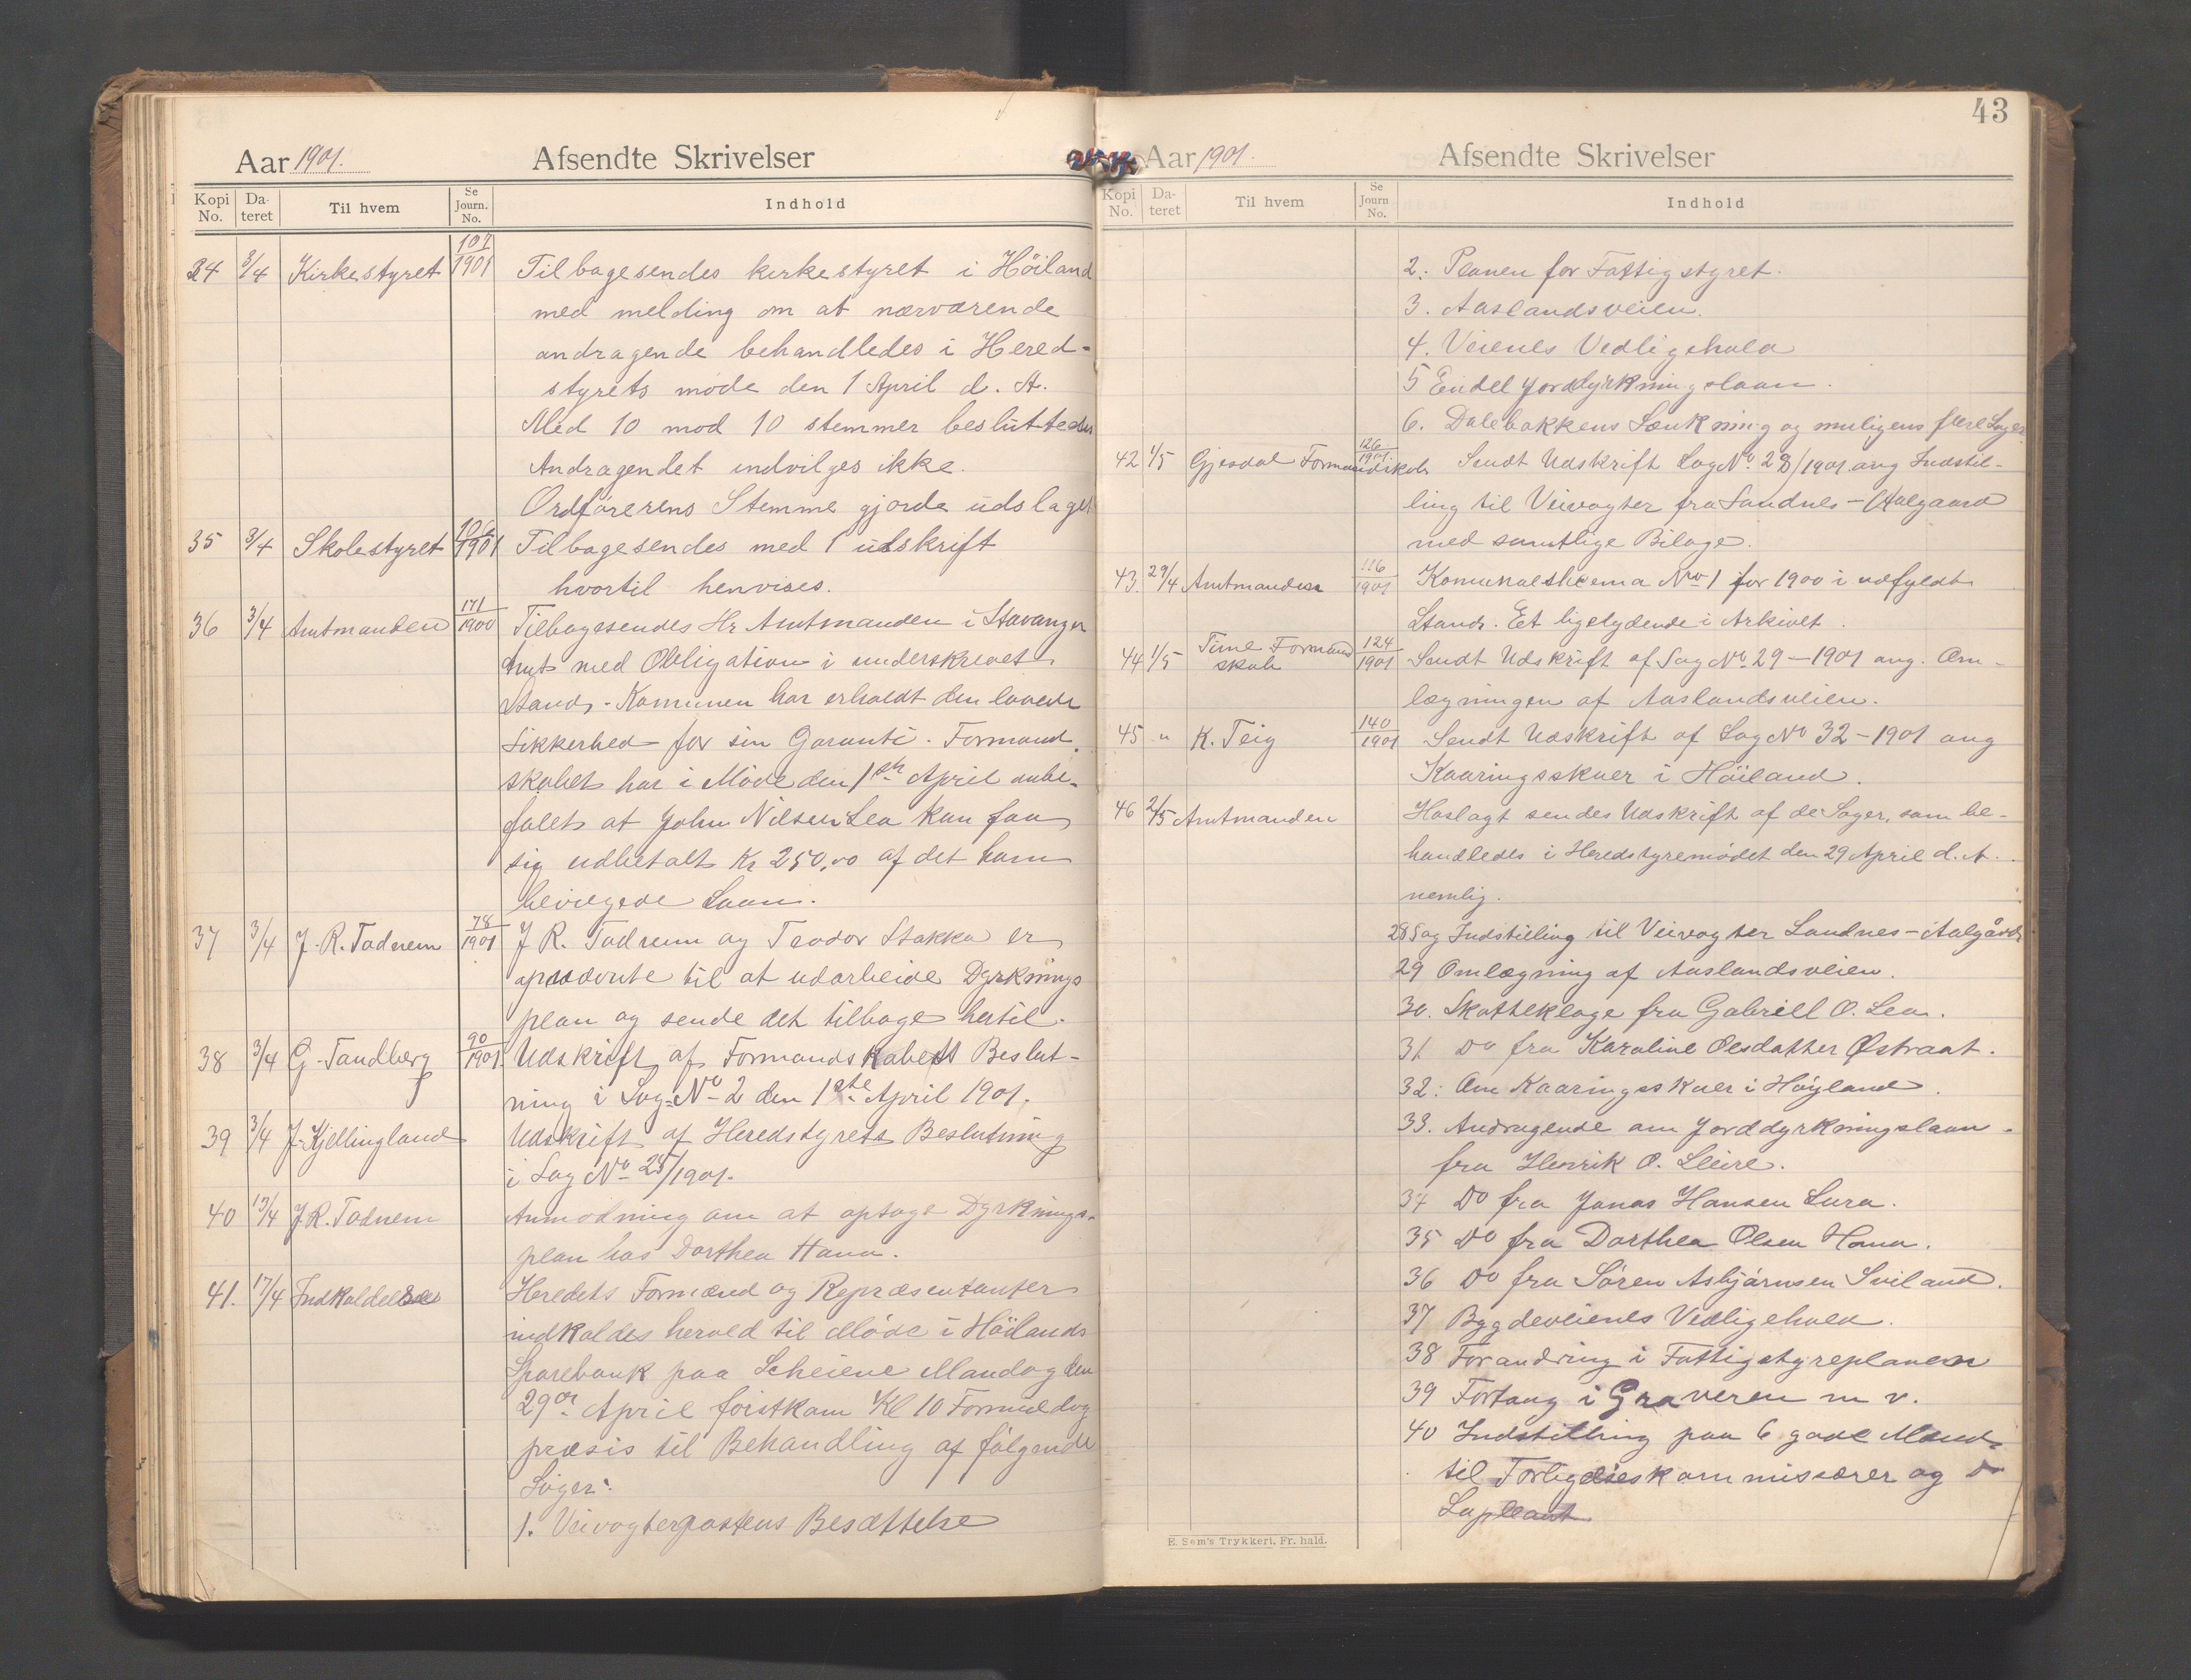 Aar 1901. Afsendte Skrivelser
Kopi No. Da- teret Til hvem Se Journ. No. Indhold
34 3/4 Kirkestyret 107/1901 Tilbagesendes kirkestyret i Höiland
med melding om at nærværende
andragende behandledes i Hered-
styrets møde den 1 April d. A.
Med 10 mod 10 stemmer besluttedes
Andragendet indvilges ikke.
Ordførerens Stemme gjorde udslaget
35 3/4 Skolestyret 106/1901 Tilbagesendes med 1 udskrift
hvortil henvises.
36 3/4 Amtmanden 171/1900 Tilbagesendes Hr Amtmanden i Stavanger
Amt med Obligation i underskrevet
Stand. - Komunen har erholdt den lovede
Sikkerhed for sin Garanti. Formand-
skabet har i Møde den 1ste April anbe-
falet at John Nilsen Lea kan faa
sig udbetalt Kr 250,00 af det ham
bevilgede Laan.
37 3/4 J. R. Tadnem 78/1901 J R. Tadnem og Teodor Stokka er
opnævnte til at udarbeide Dyrknings
plan og sende det tilbage hertil.
38 3/4 G. Tandberg 90/1901 Udskrift af Formandskabets Beslut-
ning i Sag No 2 den 1ste April 1901.
39 3/4 J. Kjellingland Udskrift af Heredstyrets Beslutning
i Sag No 25/1901.
40 13/4 J. R. Tadnem Anmodning om at optage Dyrknings-
plan hos Dorthea Hana.
41. 17/4 Indkaldelse Heredets Formænd og Repræsentanter
indkaldes herved til Møde i Höilands
Sparebank paa Scheiene Mandag den
29de April förstkom Kl 10 Formiddag
præsis til Behandling af fölgende
Sager:
1. Veivogterpostens Besættelse
43
Aar 1901. Afsendte Skrivelser
Kopi No. Da- teret Til hvem Se Journ No. Indhold
2. Planen for Fattigstyret.
3. Aaslandsveien.
4. Veienes Vedligehold
5 Endel Jorddyrkningslaan.
6. Dalebakkens Sænkning og muligens flere Sager
42 1/5 Gjesdal Formandskab 126/1901. Sendt Udskrift Sag No 28/1901 ang Indstil-
ling til Veivogter fra Sandnes - Aalgaard
med samtlige Bilage.
43. 29/4 Amtmanden 116/1901 Komunalskema No 1 for 1900 i udfyldt
Stand. Et ligelydende i Arkivet.
44 1/5 Time Formand
skab 124/1901 Sendt Udskrift af Sag No 29 - 1901 ang. Om-
lægningen af Aaslandsveien.
45 " K. Teig 140/1901 Sendt Udskrift af Sag No 32 - 1901 ang
Kaaringsskuer i Höiland.
46 2/5 Amtmanden Hoslagt sendes Udskrift af de Sager, som be-
handledes i Heredstyremödet den 29 April d. A.
nemlig.
28 Sag Indstilling til Veivogter Sandnes - Aalgård
29 Omlægning af Aaslandsveien.
30. Skatteklage fra Gabriell O. Lea.
31 Do fra Karoline Olsdatter Østraat.
32. Om Kaaringsskuer i Höyland.
33. Andragende om Jorddyrkningslaan
fra Henrik O. Lleire.
34 Do fra Jonas Hansen Lura.
35 Do fra Dorthea Olsen Hana.
36 Do fra Sören Asbjörnsen Sviland.
37 Bygdeveienes Vedligehold.
38 Forandring i Fattigstyreplanen
39 Fortaug i Graveren m v.
40 Indstilling paa 6 gode Mænd
til Forligelseskommissærer og Do
Supleant
E. Sem's Trykkeri, Fr. hald.